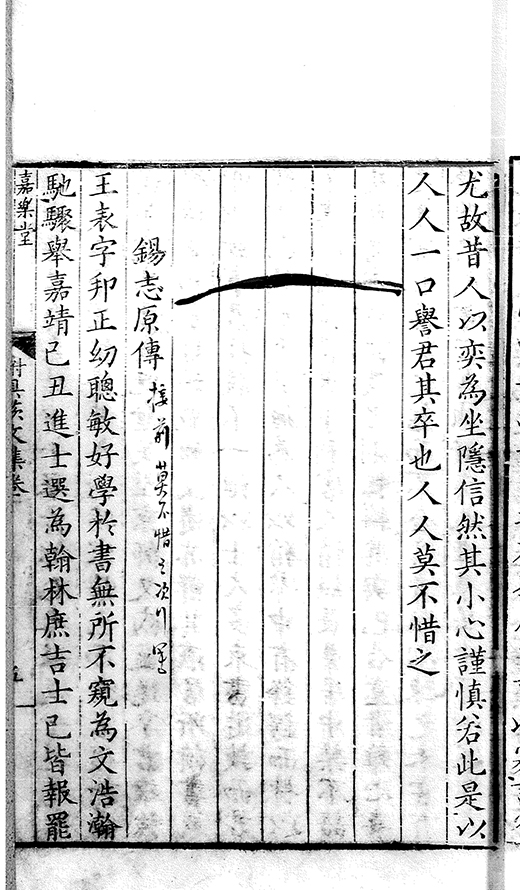 尤故昔人以奕為坐隱信然其小心謹慎若此是以
人人一口譽君其卒也人人莫不惜之
錫志原傳 接前莫不惜之次行寫
王表字邦正幼聰敏好學於書無所不窺為文浩瀚
馳驟舉嘉靖己丑進士選為翰林庶吉士已皆報罷
嘉樂堂